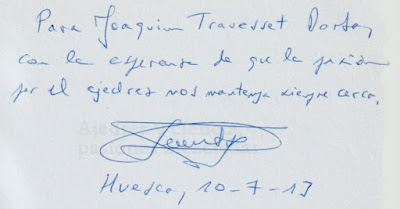 Para Joaquim Travesset Dorta,
con la esperanza de que la pasión
por el ajedrez nos mantenga siempre cerca.
Huesca, 10-7-13